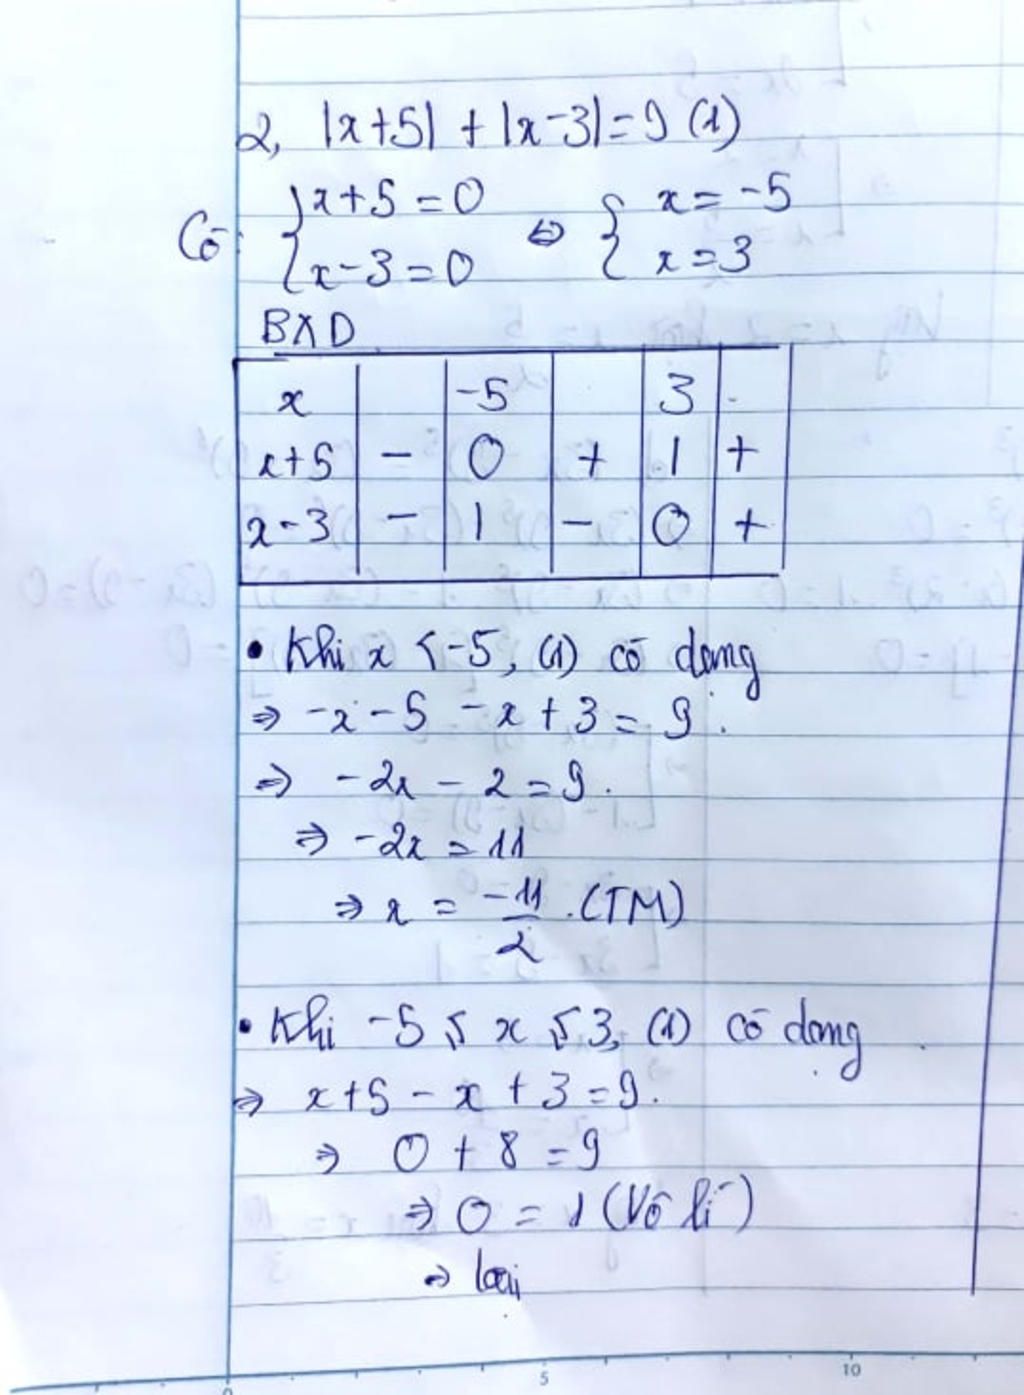 2, |x+5| + |x-3| = 9 (1)
Có: { x+5 = 0 ⇔ { x = -5
{ x-3 = 0 { x = 3
BXD
x -5 3
x+5 - 0 + | +
x-3 - | - 0 +
• Khi x < -5, (1) có dạng
⇒ -x - 5 - x + 3 = 9.
⇒ -2x - 2 = 9.
⇒ -2x = 11
⇒ x = -11/2 .(TM)
• Khi -5 ≤ x ≤ 3, (1) có dạng
⇒ x+5 - x + 3 = 9.
⇒ 0 + 8 = 9
⇒ 0 = 1 (Vô lí)
⇒ loại
0 5 10